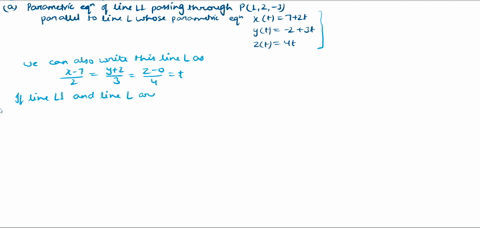 (a) Parametric eqⁿ of line L1 passing through P(1,2,-3)
parallel to line L whose parametric eqⁿ x(t) = 7+2t
y(t) = -2+3t
z(t) = 4t
we can also write this line L as
x-7/2 = y+2/3 = z-0/4 = t
If line L1 and line L are